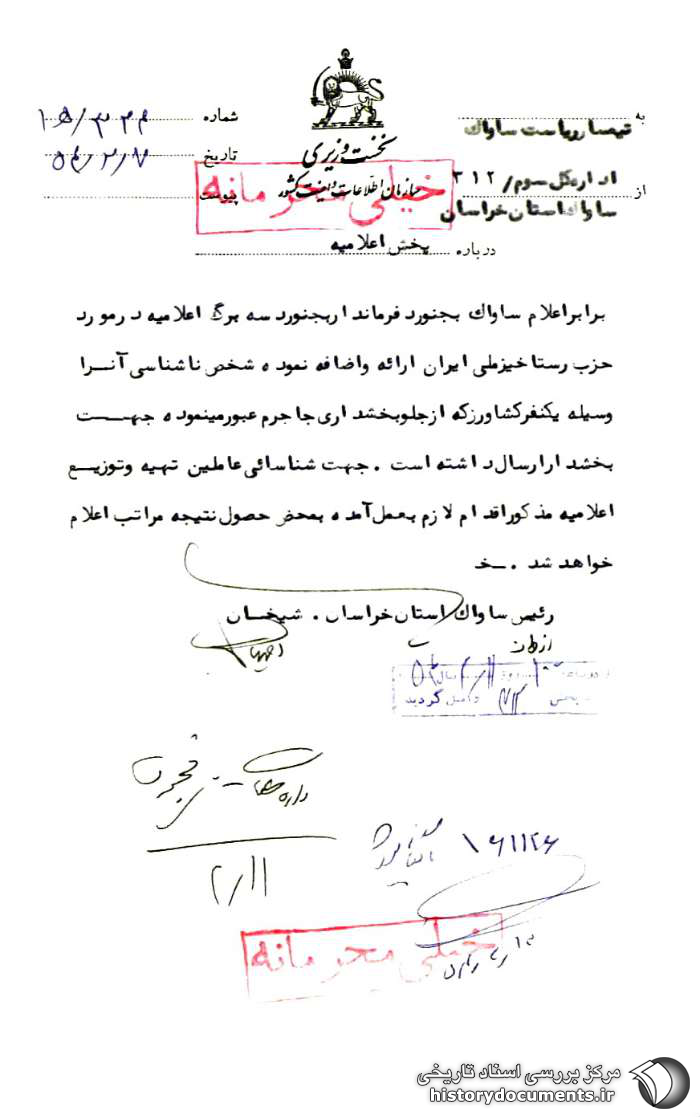 به تیمسار ریاست ساواک
شماره ۱۵/۳۴۴
نخست وزیری
اداره کل سوم/ ۳۱۲
تاریخ ۵۴/۲/۷
سازمان اطلاعات و امنیت کشور
از ساواک استان خراسان
پیوست
خیلی محرمانه
درباره پخش اعلامیه
برابر اعلام ساواک بجنورد فرماندار بجنورد سه برگ اعلامیه در مورد
حزب رستاخیز ملی ایران ارائه و اضافه نموده شخص ناشناسی آنرا
وسیله یکنفر کشاورز که از جلو بخشداری جاجرم عبور مینموده جهت
بخشدار ارسال داشته است . جهت شناسائی عاملین تهیه و توزیع
اعلامیه مذکور اقدام لازم بعمل آمده بمحض حصول نتیجه مراتب اعلام
خواهد شد . خ
رئیس ساواک استان خراسان . شیخان
از طرف
سال ۵۴
واصل گردید
۲/۱۱
خیلی محرمانه
مرکز بررسی اسناد تاریخی
historydocuments.ir